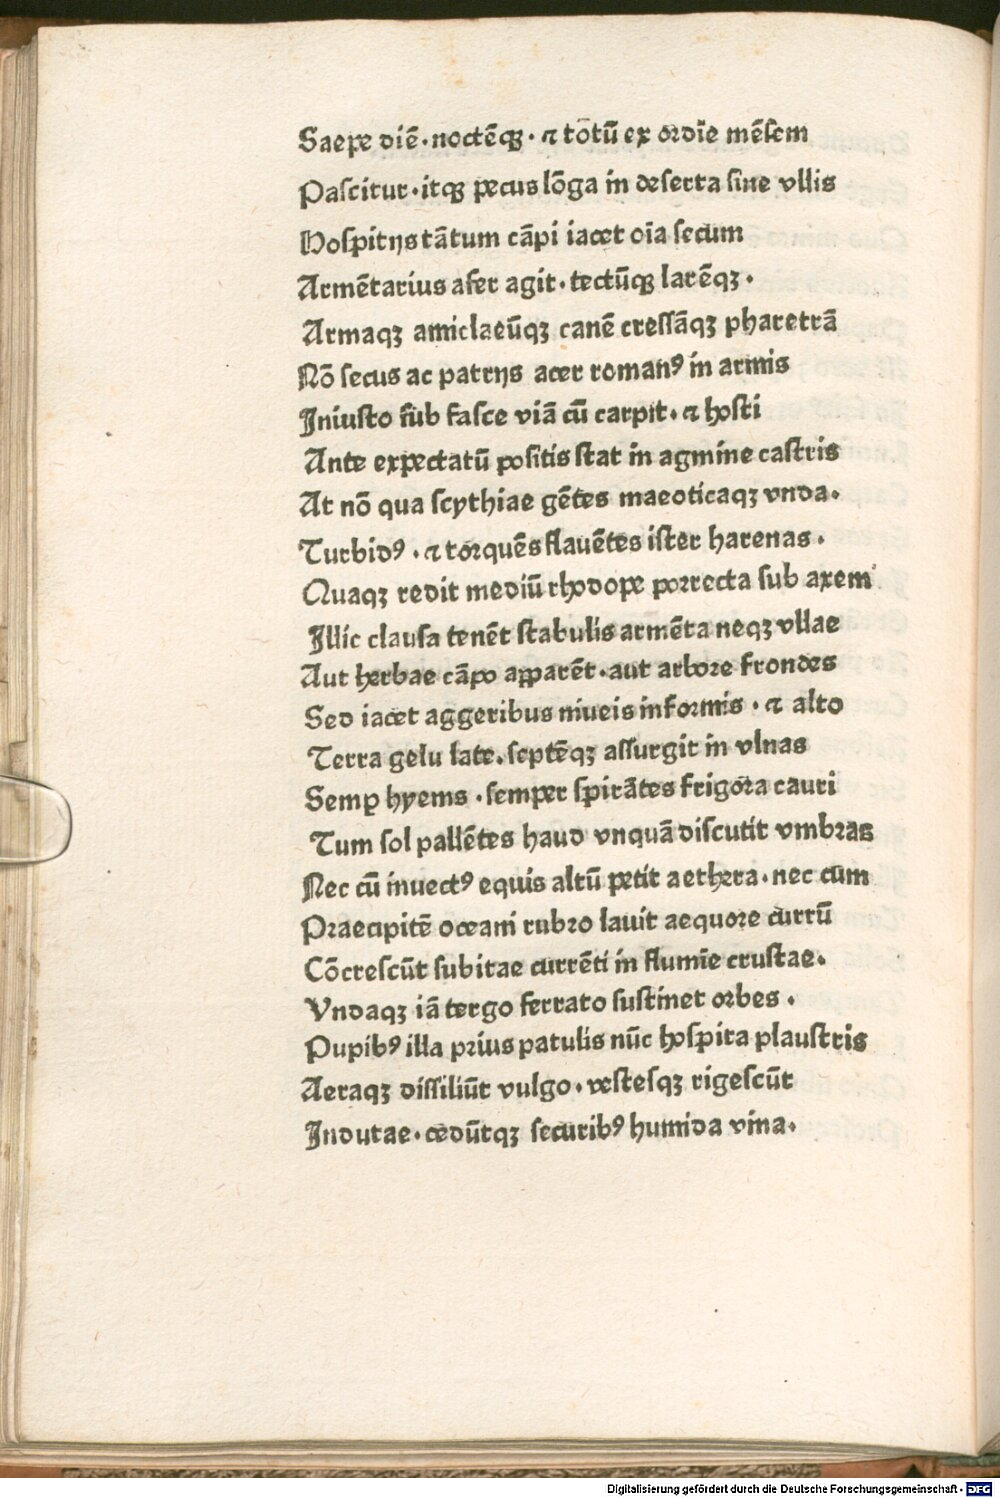 Saepe diē·noctēqꝫ·⁊ totū ex ordīe mēsem
Pascitur·itqꝫ pecus lōga in deserta sine vllis
Hospitijs tātum cāpi iacet oīa secum
Armētarius afer agit·tectūqꝫ larēqꝫ·
Armaqꝫ amiclaeūqꝫ canē cressāqꝫ pharetrā
Nō secus ac patrijs acer romanꝰ in armis
Iniusto sub fasce viā cū carpit·⁊ hosti
Ante expectatū positis stat in agmine castris
At nō qua scythiae gētes maeoticaqꝫ vnda·
Turbidꝰ·⁊ torquēs flauētes ister harenas·
Quaqꝫ redit mediū rhodope porrecta sub axem
Illic clausa tenēt stabulis armēta neqꝫ vllae
Aut herbae cāpo apparēt·aut arbore frondes
Sed iacet aggeribus niueis informis·⁊ alto
Terra gelu late·septēqꝫ assurgit in vlnas
Semꝑ hyems·semper spirātes frigora cauri
Tum sol pallētes haud vnquā discutit vmbras
Nec cū inuectꝰ equis altū petit aethera·nec cum
Praecipitē oceani rubro lauit aequore currū
Cōcrescūt subitae currēti in flumīe crustae·
Vndaqꝫ iā tergo ferrato sustinet orbes·
Pupibꝰ illa prius patulis nūc hospita plaustris
Aeraqꝫ dissiliūt vulgo·vestesqꝫ rigescūt
Indutae·cedūtqꝫ securibꝰ humida vina·
Digitalisierung gefördert durch die Deutsche Forschungsgemeinschaft - DFG